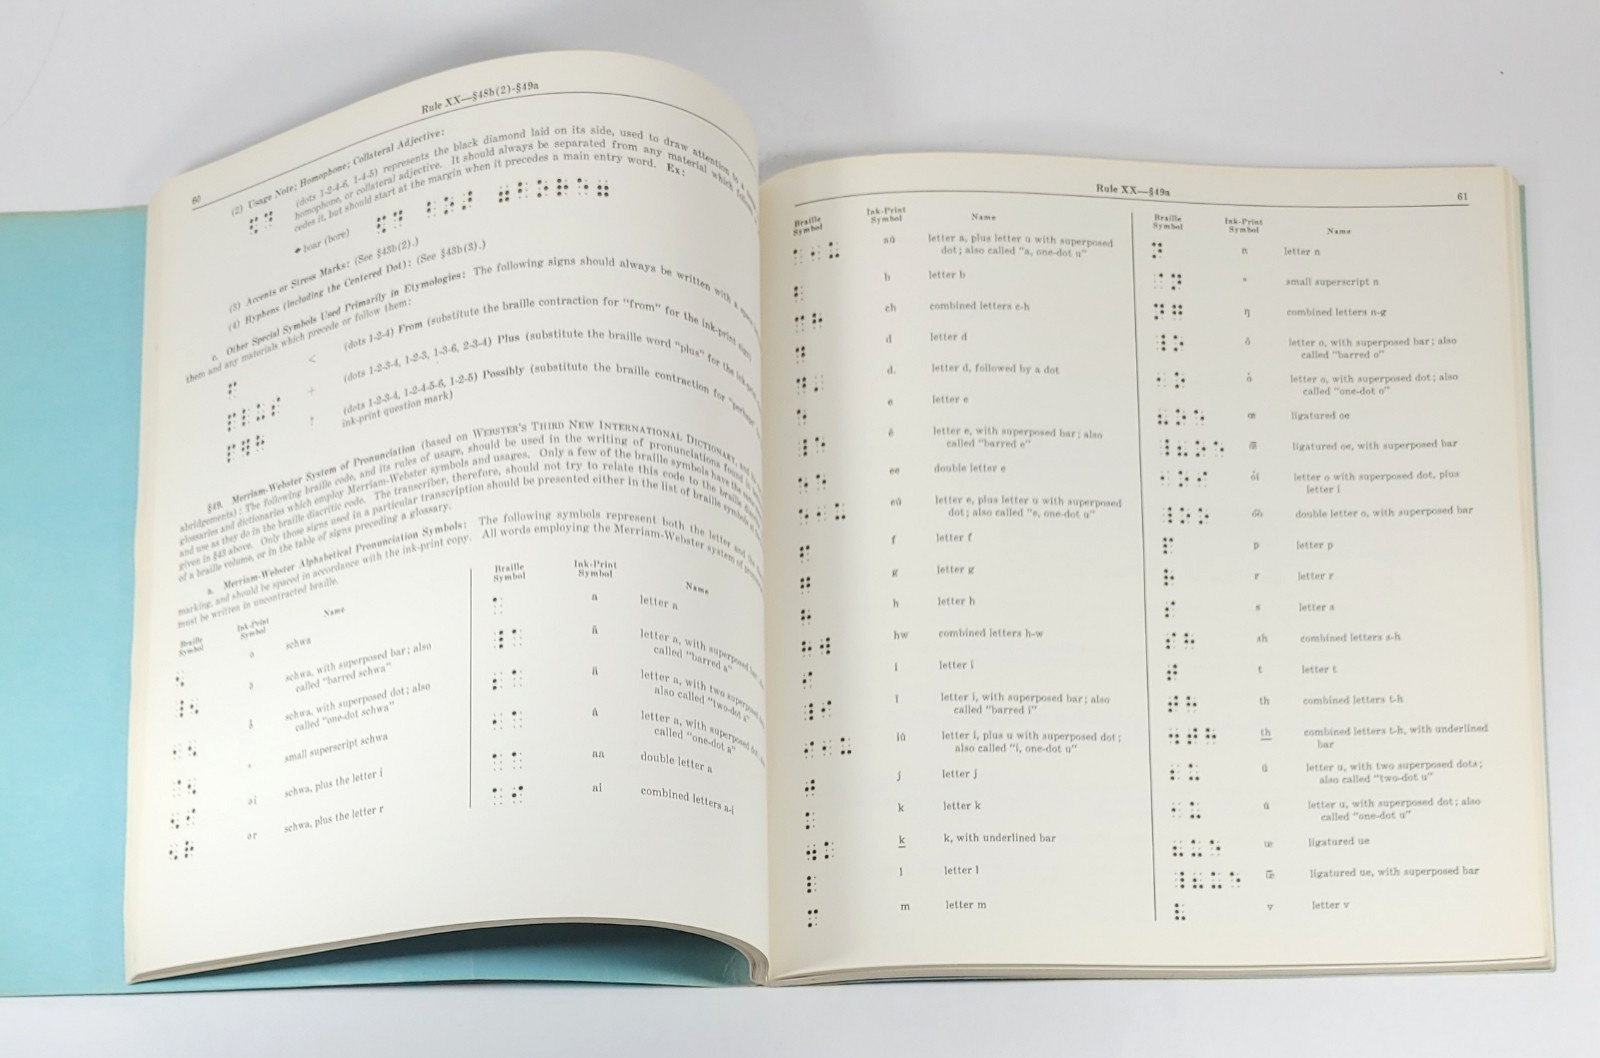 60
Rule XX—§48b(2)-§49a
(2) Usage Note; Homophone; Collateral Adjective:
(dots 1-2-4-6, 1-4-5) represents the black diamond laid on its side, used to draw attention to a
homophone, or collateral adjective. It should always be separated from any material which
cedes it, but should start at the margin when it precedes a main entry word. Ex:
boar (bore)
(3) Accents or Stress Marks: (See §43b(2).)
(4) Hyphens (including the Centered Dot): (See §43b(3).)
c. Other Special Symbols Used Primarily in Etymologies: The following signs should always be written with a
them and any materials which precede or follow them:
< (dots 1-2-4) From (substitute the braille contraction for "from" for the ink-print sign)
÷ (dots 1-2-3-4, 1-2-3, 1-3-6, 2-3-4) Plus (substitute the braille word "plus" for the
? (dots 1-2-3-4, 1-2-4-5-6, 1-2-5) Possibly (substitute the braille contraction for
ink-print question mark)
§49. Merriam-Webster System of Pronunciation (based on WEBSTER'S THIRD NEW INTERNATIONAL DICTIONARY, and
abridgements): The following braille code, and its rules of usage, should be used in the writing of pronunciations found in
glossaries and dictionaries which employ Merriam-Webster symbols and usages. Only a few of the braille symbols have the
and use as they do in the braille diacritic code. The transcriber, therefore, should not try to relate this code to the braille
given in §43 above. Only those signs used in a particular transcription should be presented either in the list of braille symbols
of a braille volume, or in the table of signs preceding a glossary.
a. Merriam-Webster Alphabetical Pronunciation Symbols: The following symbols represent both the letter and
marking, and should be spaced in accordance with the ink-print copy. All words employing the Merriam-Webster system of
must be written in uncontracted braille.
Braille Symbol Ink-Print Symbol Name
ə schwa
ə̄ schwa, with superposed bar; also
called "barred schwa"
ə̇ schwa, with superposed dot; also
called "one-dot schwa"
ᵊ small superscript schwa
əi schwa, plus the letter i
ər schwa, plus the letter r
Braille Symbol Ink-Print Symbol Name
a letter a
ā letter a, with superposed
called "barred a"
ä letter a, with two superposed
also called "two-dot a"
ȧ letter a, with superposed
called "one-dot a"
aa double letter a
ai combined letters a-i
Rule XX—§49a
61
Braille Symbol Ink-Print Symbol Name
au̇ letter a, plus letter u with superposed
dot; also called "a, one-dot u"
b letter b
ch combined letters c-h
d letter d
d. letter d, followed by a dot
e letter e
ē letter e, with superposed bar; also
called "barred e"
ee double letter e
eu̇ letter e, plus letter u with superposed
dot; also called "e, one-dot u"
f letter f
g letter g
h letter h
hw combined letters h-w
i letter i
ī letter i, with superposed bar; also
called "barred i"
iu̇ letter i, plus u with superposed dot;
also called "i, one-dot u"
j letter j
k letter k
k̲ k, with underlined bar
l letter l
m letter m
Braille Symbol Ink-Print Symbol Name
n letter n
ⁿ small superscript n
ŋ combined letters n-g
ō letter o, with superposed bar; also
called "barred o"
ȯ letter o, with superposed dot; also
called "one-dot o"
œ ligatured oe
œ̄ ligatured oe, with superposed bar
ȯi letter o with superposed dot, plus
letter i
o͞o double letter o, with superposed bar
p letter p
r letter r
s letter s
sh combined letters s-h
t letter t
th combined letters t-h
t̲h̲ combined letters t-h, with underlined
bar
ü letter u, with two superposed dots;
also called "two-dot u"
u̇ letter u, with superposed dot; also
called "one-dot u"
ue ligatured ue
u͞e ligatured ue, with superposed bar
v letter v